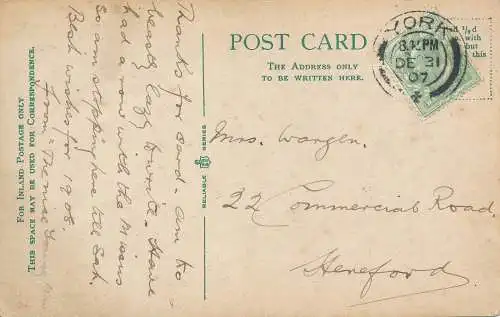 POST CARD
THE ADDRESS ONLY
TO BE WRITTEN HERE.
YORK
8.15PM
DE 31
07
½d
with
but
this
FOR INLAND POSTAGE ONLY
THIS SPACE MAY BE USED FOR CORRESPONDENCE.
Thanks for card - am to
beastly lazy to write - Have
had a row with the Missus
so am stopping here till Sat.
Best wishes for 1908.
From
RELIABLE
SERIES
Mrs.
22 Commercial Road.
Hereford